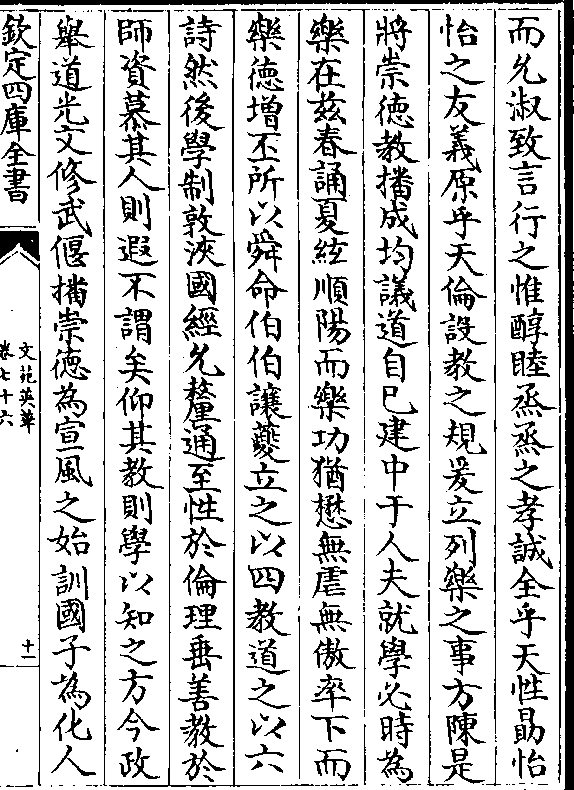 而允淑致言行之惟醇睦烝烝之孝誠全乎天性勗怡
怡之友義原乎天倫設教之規爰立列樂之事方陳是
將崇徳教播成均議道自已建中于人夫就學必時為
樂在兹春誦夏絃順陽而樂功猶懋無虐無傲率下而
樂徳增丕所以舜命伯伯讓夔立之以四教道之以六
詩然後學制敦浹國經允釐通至性於倫理垂善教於
師資慕其人則遐不謂矣仰其教則學以知之方今政
舉道光文修武偃播崇徳為宣風之始訓國子為化人
欽定四庫全書
文苑英華
卷七十六
十一